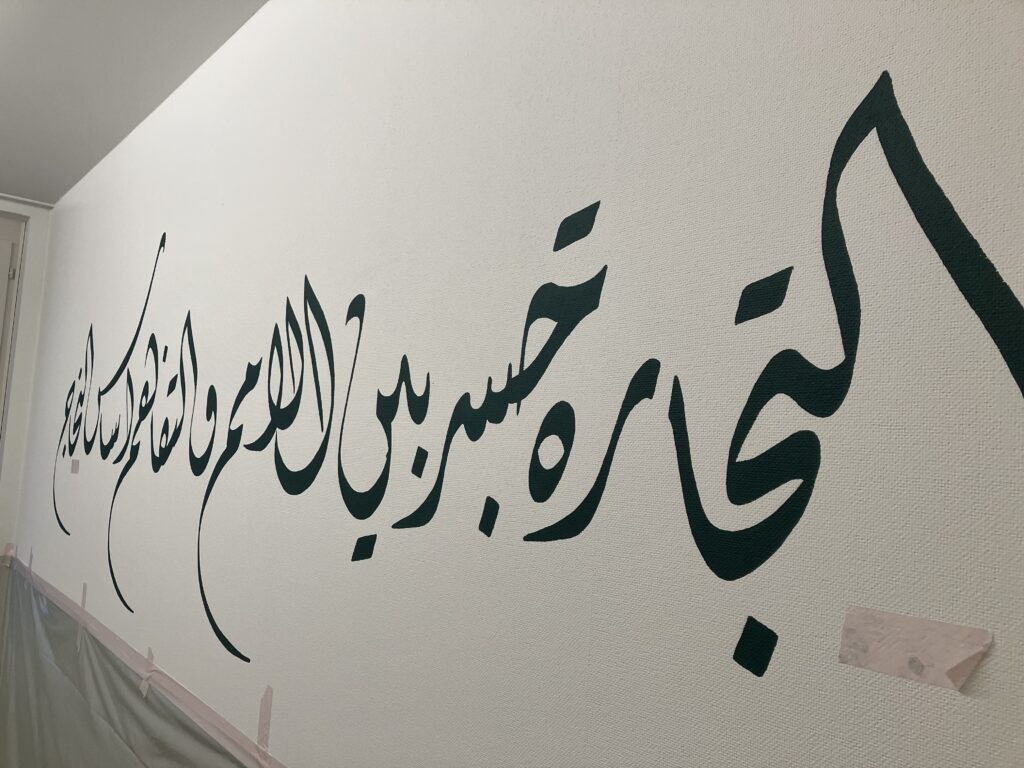 التجاره جسر بين الامم والتفاهم اساس النجاح